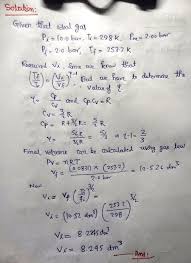 Solution:
Given that ideal gas
Pi = 10.0 bar, Ti = 298 K, Pex = 2.00 bar
Pf = 2.0 bar, Tf = 253.2 K
Required Vi. Since we know that
(Tf/Ti) = (Vi/Vf)^γ-1. But we have to determine the
value of γ
γ = Cp/Cv and Cp - Cv = R
Cv = 3/2 R
Cp = R + 3/2 R = 5/2 R
Final volume can be calculated using gas law
PV = nRT
Vf = (0.0831) × (253.2) / (2.0 bar) = 10.526 dm³
Now
Vi = Vf (Tf/Ti)^3/2
Vi = (10.52 dm³) (253.2/298)^3/2
Vi = 8.245 dm³
Vi = 8.245 dm³
Ans.